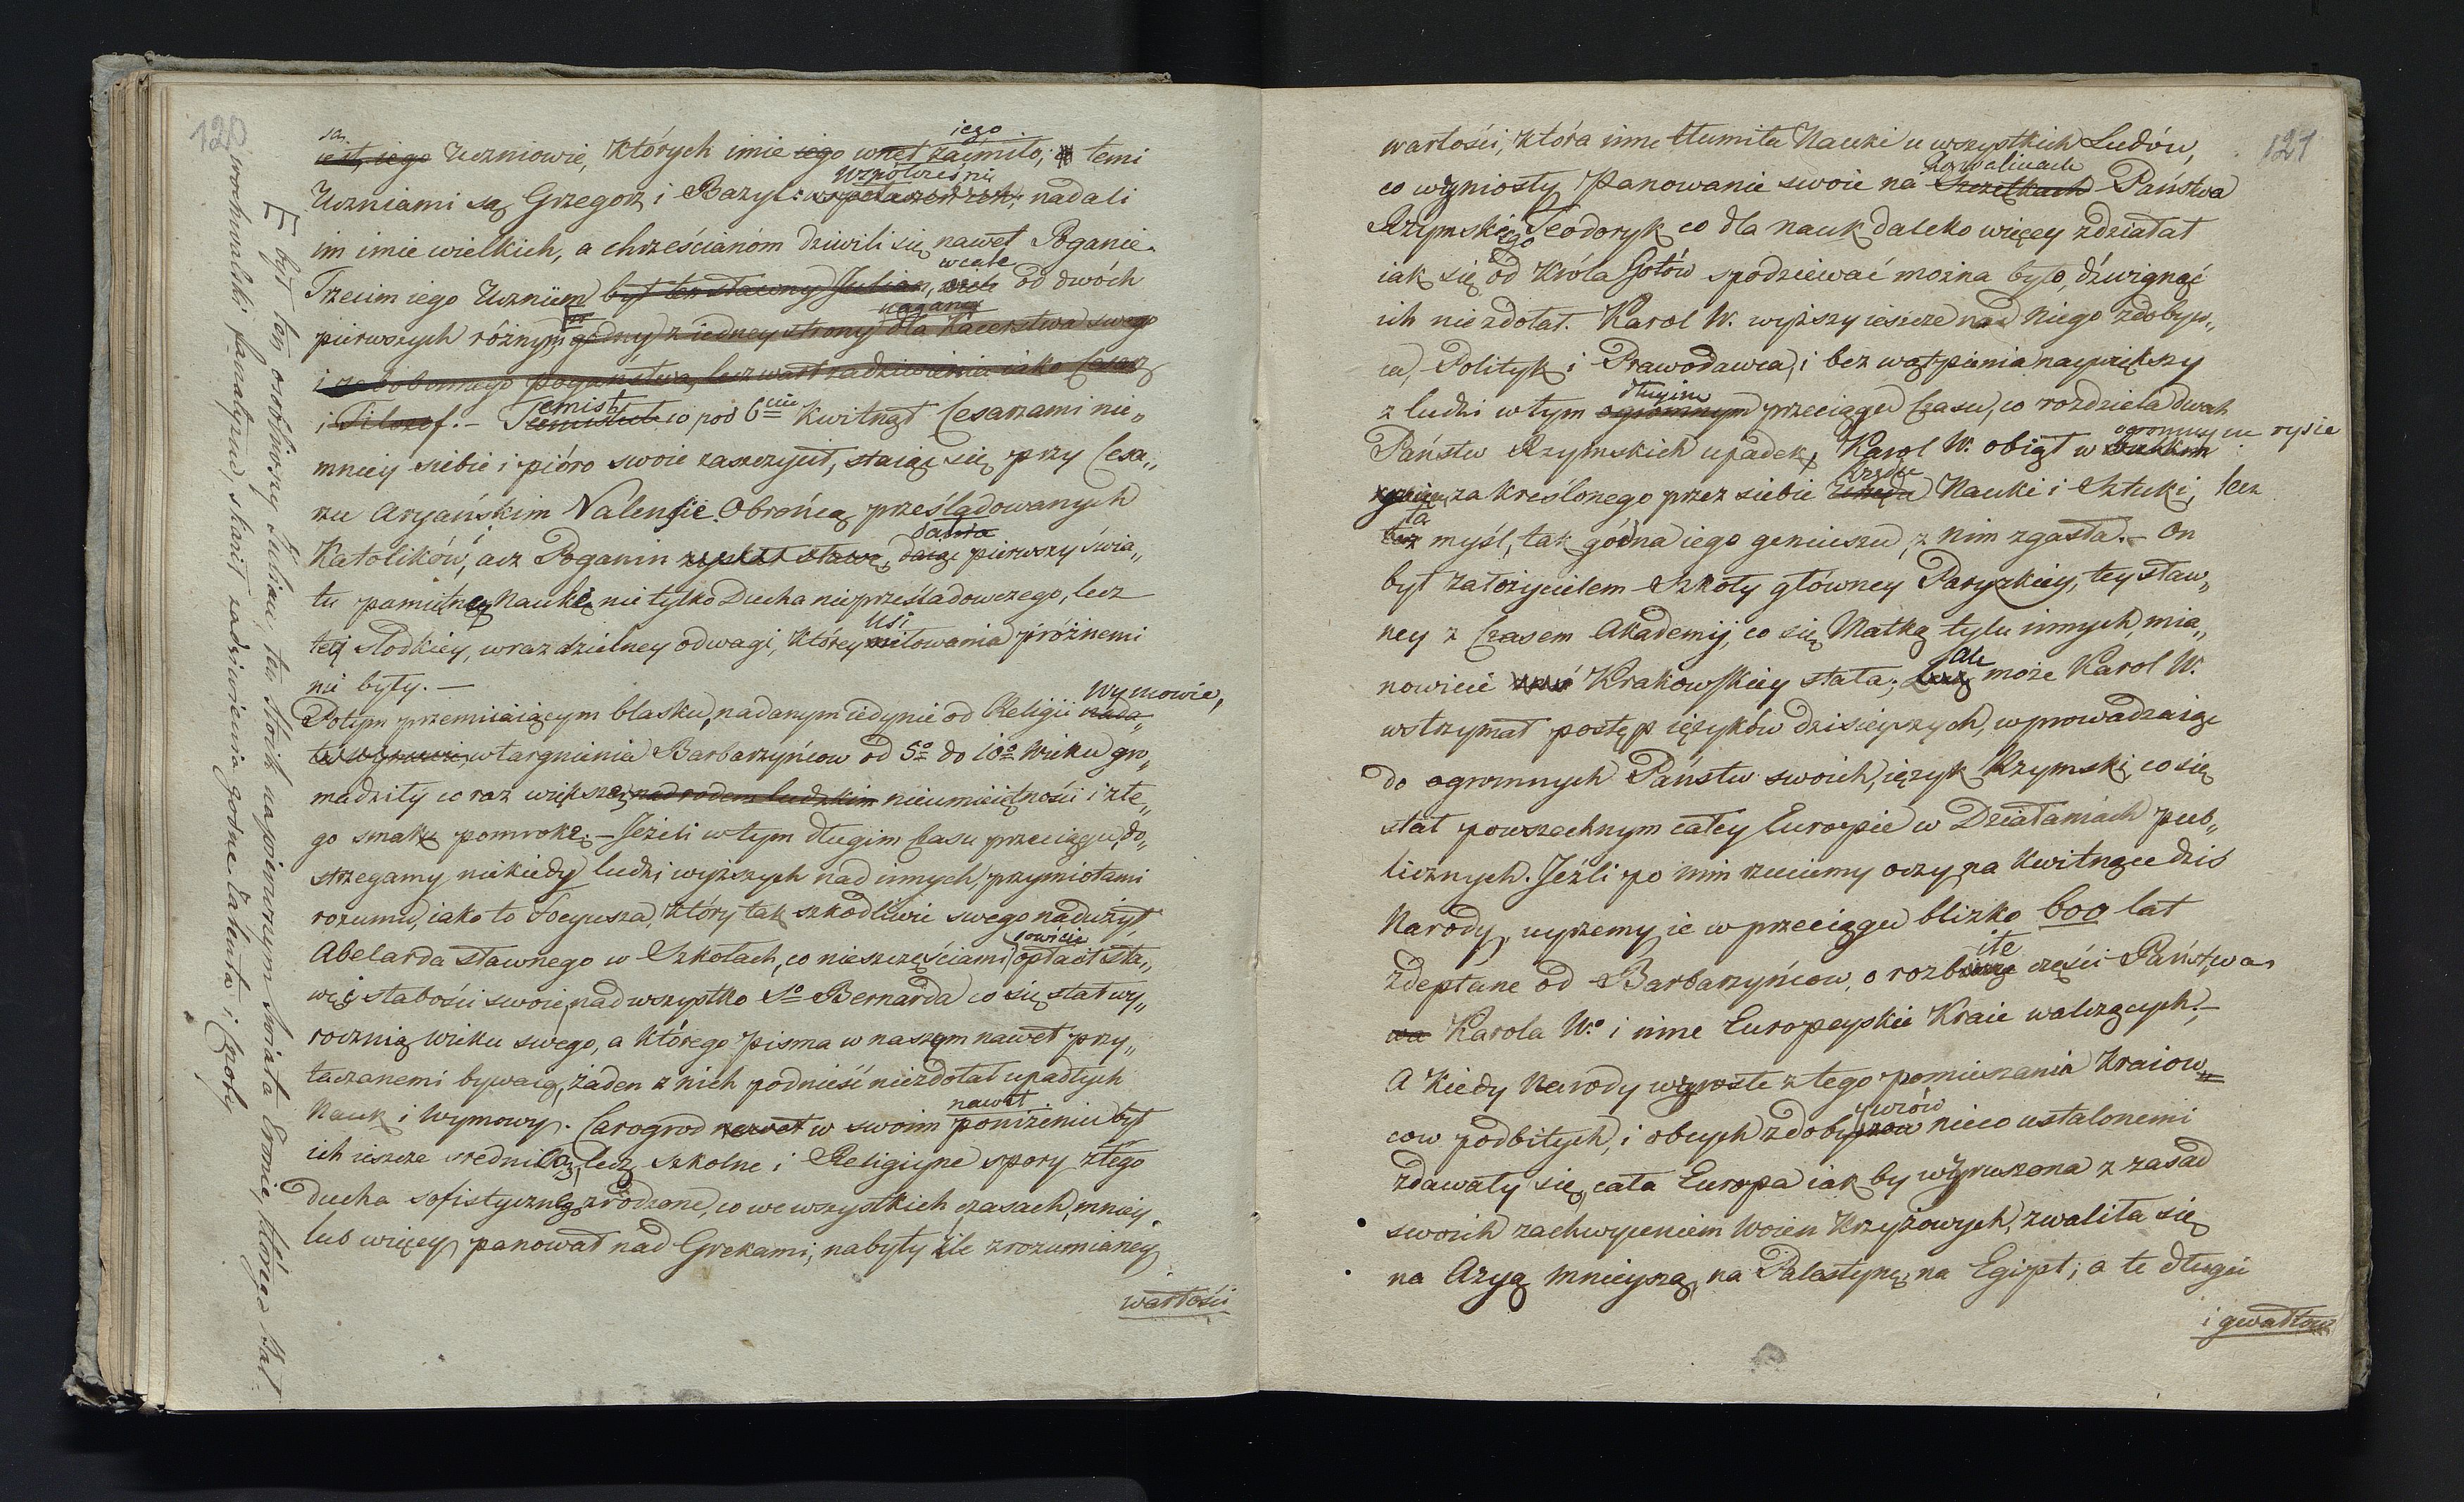 120
są
iest, iego Uczniowie, których imie iego wnet zaćmiło; temi
iego
Współcześni
Uczniami są Grzegorz i Bazyl: nadali
im imie wielkich, a chrześcianóm dziwili się nawet Poganie.
wcale
Trzecim iego Uczniem był ten sławny Julian, od dwóch
naganę
pierwszych różnym godny z iedney strony dla Kacerstwa swego
i zabobonnego pogaństwa, lecz wart zadziwienia iako Cesarz
i Filozof. – Temist co pod 6ciu kwitnął Cesarzami nie„
mniey siebie i pióro swoie zaszczycił, staiąc się przy Cesa„
rzu Aryańskim Valensie Obrońcą prześladowanych
Katolików, acz Poganin zyskał sławę, daiąc pierwszy świa„
tu pamiętną Naukę nie tylko Ducha nieprześladowczego, lecz
usi
tey słodkiey, wraz dzielney odwagi, którey miłowania próżnemi
nie były. –
Wymowie,
Potym przemiiaiącym blasku, nadanym iedynie od Religii nada„
wtargnienia Barbarzyńcow od 5o do 10o Wieku gro„
madziły co raz większey nad rodem ludzkim nieumieiętności i złe„
go smaku pomrokę. – Jeżeli w tym długim Czasu przeciągu, do„
strzegamy niekiedy ludzi wyższych nad innych, przymiotami
rozumu, iako to Focyusza, który tak szkodliwie swego nadużył,
sowicie
Abelarda sławnego w Szkołach, co nieszczęściami opłacił sła„
wę i słabości swoie, nad wszystko So Bernarda co się stał wy„
rocznią wieku swego, a którego pisma w naszym nawet przy„
taczanemi bywaią, żaden z nich podnieść niezdołał upadłych
nawet
Nauk i Wymowy. Carogrod nawet w swoim poniżeniu był
ich ieszcze srednicą, lecz szkolne i Religiyne spory złego
ducha sofistycznego zrodzone, co we wszystkich czasach, mniey
lub więcey panował nad Grekami, nabyły źle zrozumianey
wartości
był ten osobliwszy Julian, ten Stoik na pierwszym Świata Tronie, którego Wał
zabobonny fanatyzm, skaził zadziwienia godne Talenta i Cnoty
121
wartości, która inne tłumiła Nauki u wszystkich Ludów,
Rozwalinach
co wzniosły Panowanie swoie na Szczętkach Państwa
Rzymskiego Teodoryk co dla nauk daleko więcey zdziałał
iak się od Króla Gotów spodziewać można było, dźwignąć
ich nie zdołał. Karol W. wyższy ieszcze nad Niego zdobyw„
ca, Polityk i Prawodawca, i bez wątpienia naywiększy
długim
z ludzi w tym ogromnym przeciągu Czasu, co rozdziela dwoch
ogromnym rysie
Państw Rzymskich upadek, Karol W. obiął w wielkim
zakreślonego przez siebie Rządu Nauki i Sztuki, lecz
ta
myśl, tak godna iego genieuszu, z nim zgasła. – On
był założycielem Szkoły główney Paryzkiey, tey sław„
ney z Czasem Akademij, co się Matką tylu innych, mia„
ale
nowicie Krakowskiey stała; lecz może Karol W.
wstrzymał postęp ięzyków dzisieyszych, wprowadzaiąc
do ogromnych Państw swoich, ięzyk Rzymski, co się
stał powszechnym całey Europie w Działaniach pub„
licznych. Jeźli po nim rzuciemy oczy na kwitnące dziś
Narody, uyrzemy ie w przeciągu blizko 600 lat
ite
zdeptane od Barbarzyńcow, o rozbite części Państwa
wa Karola W.o i inne Europeyskie Kraie walczących. –
A kiedy Narody wzrosłe z tego pomieszania kraiow„
wców
cow podbitych, i obcych zdobywców nieco ustalonemi
zdawały się, cała Europa iak by wzruszona z zasad
swoich zachwyceniem Woien Krzyżowych, zwaliła się
na Azyą mnieyszą, na Palestynę, na Egipt; a te długie
i gwałtow